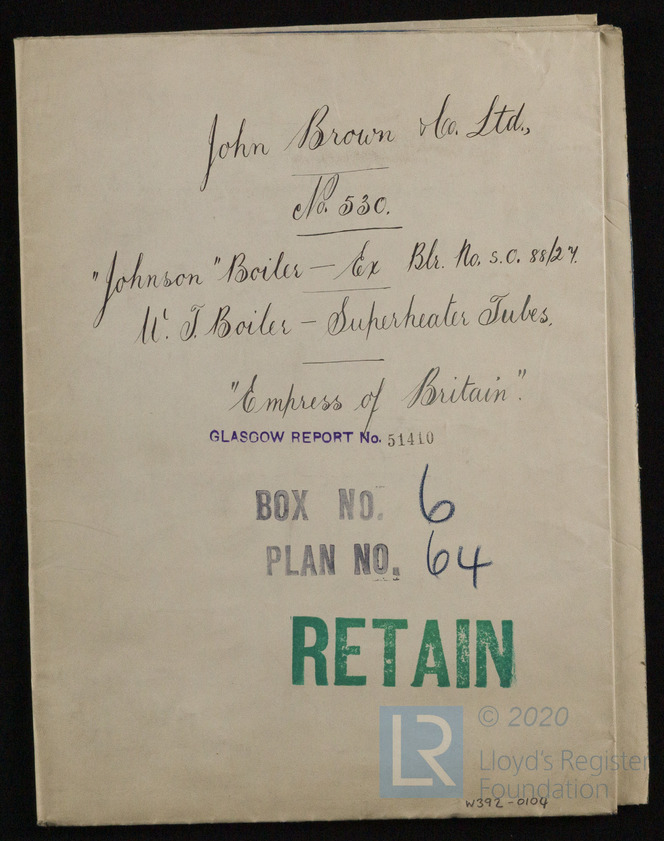 John Brown & Co. Ltd.,
No. 530.
"Johnson" Boiler – Ex Blr. No. S.O. 88/27.
W. T. Boiler – Superheater Tubes.
"Empress of Britain".
GLASGOW REPORT No. 51410
BOX NO. 6
PLAN NO. 64
RETAIN
LR
© 2020
Lloyd's Register
Foundation
W392-0104